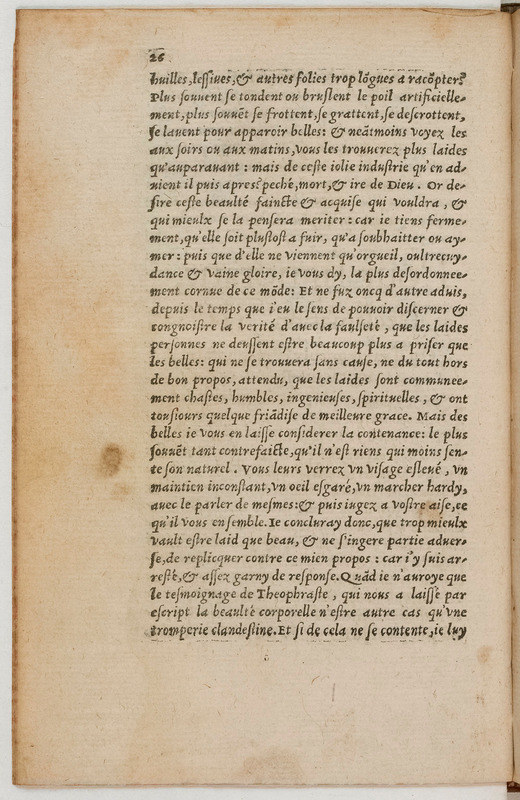 26
huilles, lessiues, & autres folies trop lōgues a racōpter?
Plus souuent se tondent ou bruslent le poil artificielle-
ment, plus souuēt se frottent, se grattent, se descrottent,
se lauent pour apparoir belles: & neātmoins voyez les
aux soirs ou aux matins, vous les trouuerez plus laides
qu'auparauant: mais de ceste iolie industrie qu'en ad-
uient il puis apres? peché, mort, & ire de Dieu. Or de-
sire ceste beaulté faincte & acquise qui vouldra, &
qui mieulx se la pensera meriter: car ie tiens ferme-
ment, qu'elle soit plustost a fuir, qu'a soubhaitter ou ay-
mer: puis que d'elle ne viennent qu'orgueil, oultrecuy-
dance & vaine gloire, ie vous dy, la plus desordonnee-
ment cornue de ce mōde: Et ne fuz oncq d'autre aduis,
depuis le temps que i'eu le sens de pouuoir discerner &
congnoistre la verité d'auec la faulseté, que les laides
personnes ne deussent estre beaucoup plus a priser que
les belles: qui ne se trouuera sans cause, ne du tout hors
de bon propos, attendu, que les laides sont communee-
ment chastes, humbles, ingenieuses, spirituelles, & ont
tousiours quelque friādise de meilleure grace. Mais des
belles ie vous en laisse considerer la contenance: le plus
souuēt tant contrefaicte, qu'il n'est riens qui moins sen-
te son naturel. Vous leurs verrez vn visage esleué, vn
maintien inconstant, vn oeil esgaré, vn marcher hardy,
auec le parler de mesmes: & puis iugez a vostre aise, ce
qu'il vous en semble. Ie concluray donc, que trop mieulx
vault estre laid que beau, & ne s'ingere partie aduer-
se, de replicquer contre ce mien propos: car i'y suis ar-
resté, & assez garny de response. Quād ie n'auroye que
le tesmoignage de Theophraste, qui nous a laissé par
escript la beaulté corporelle n'estre autre cas qu'vne
tromperie clandestine. Et si de cela ne se contente, ie luy